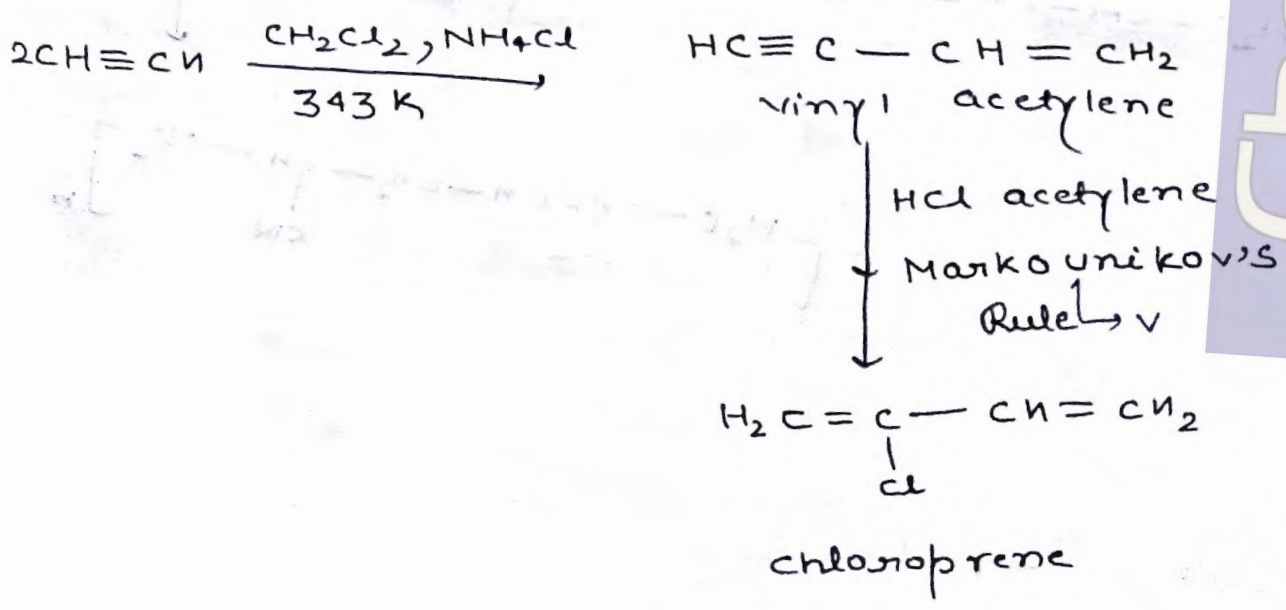 2CH≡CH CH₂Cl₂, NH₄Cl HC≡C — CH = CH₂
343 K vinyl acetylene
HCl acetylene
Markounikov's
Rule ↳ v
H₂C = C — CH = CH₂
Cl
chloroprene